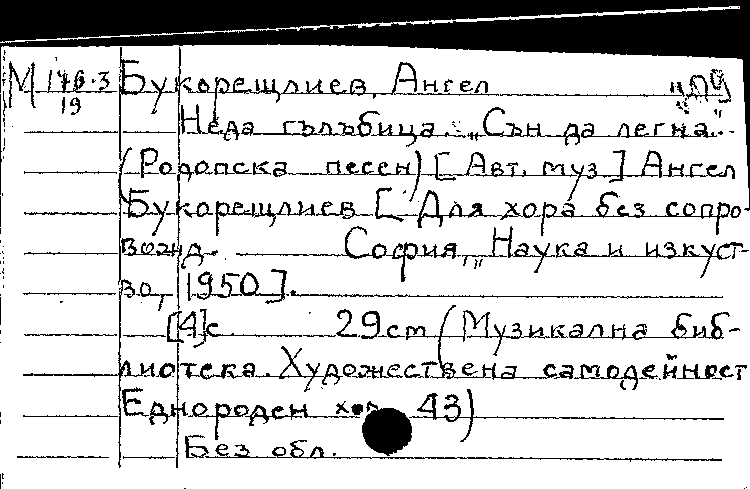 М 176.3 Букорещлиев, Ангел
19 Неда гълъбица. „Сън да легна"
(Родопска песен) [ Авт. муз ] Ангел
Букорещлиев [ Для хора без сопро-
вожд. София, „Наука и изкуст-
во, 1950 ].
[4]с 29cm (Музикална биб-
лиотека. Художествена самодейност
Еднороден 43)
Без обл.